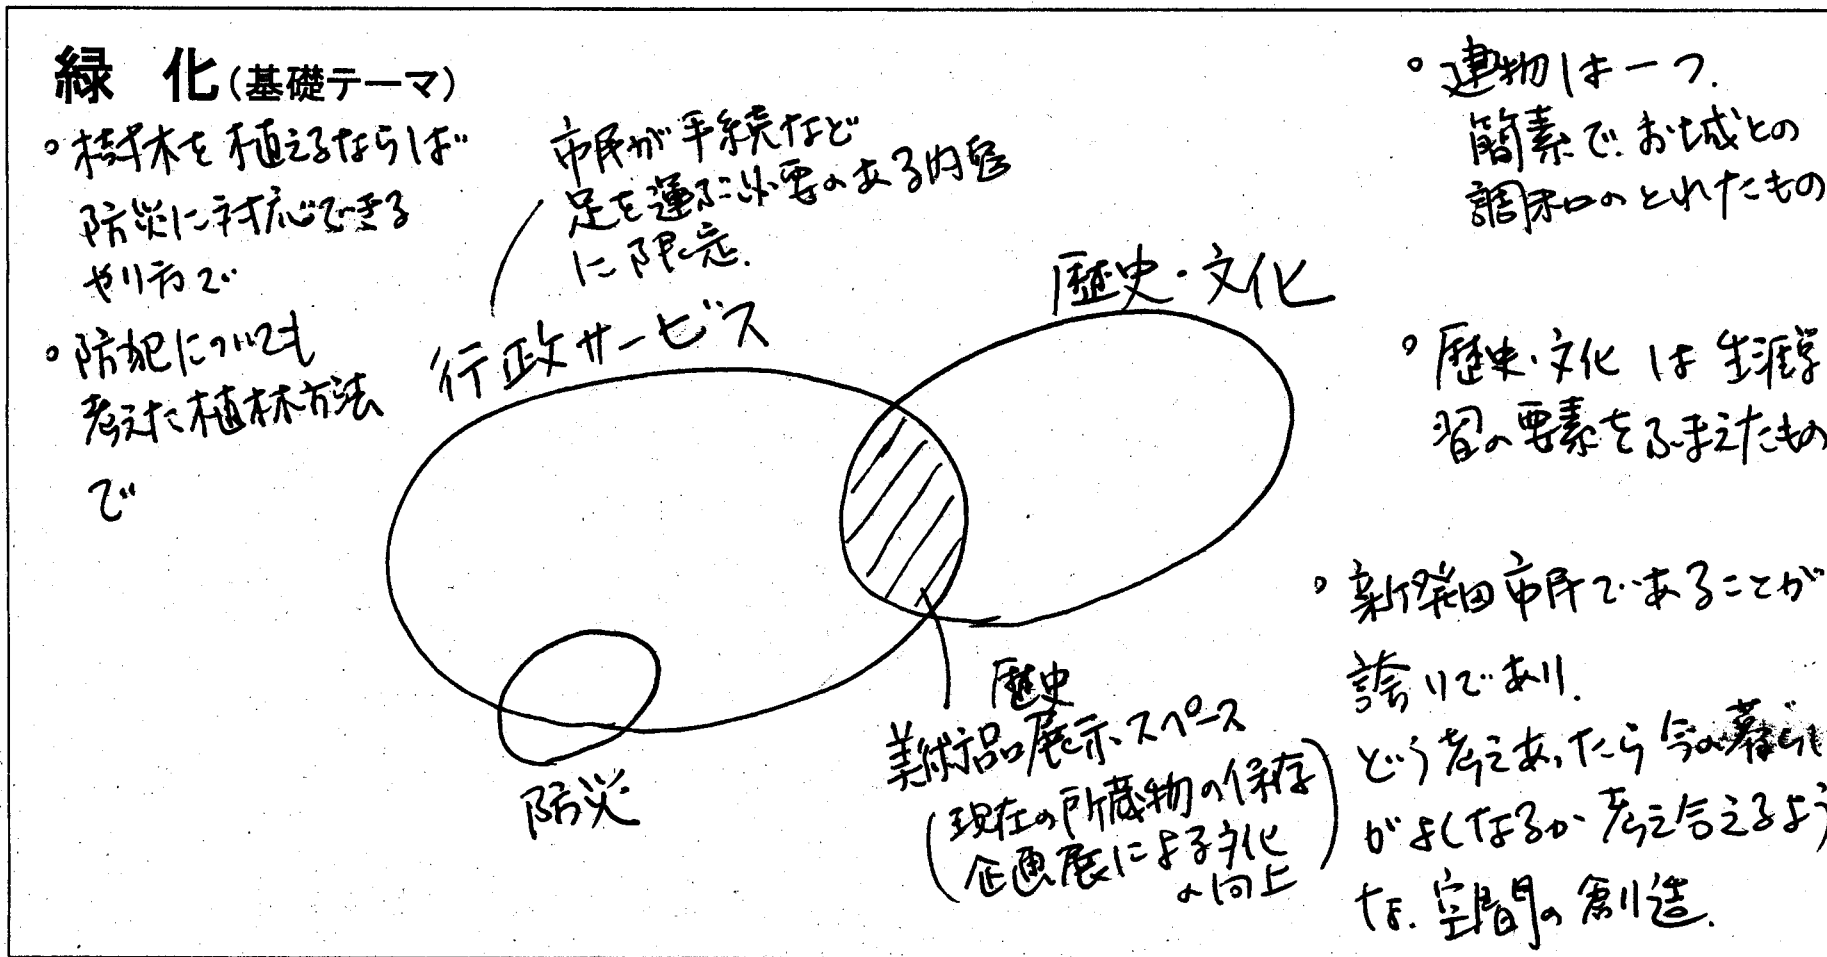 緑 化(基礎テーマ)
。樹木を植えるならば
防災に対応できる
やり方で
。防犯についても
考えた植林方法
で
市民が手続など
足を運ぶ必要のある内容
に限定.
行政サービス
歴史・文化
防災
歴史
美術品展示スペース
(現在の所蔵物の保存
企画展による文化
の向上)
。建物は一つ.
簡素で、お城との
調和のとれたもの
。歴史・文化 は 生涯学
習の要素をふまえたもの
。新発田市民であることが
誇りであり.
どう考えあったら 今の暮らし
がよくなるか 考え合えるよう
な. 空間の創造.